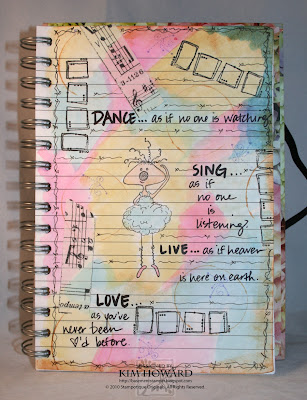 3-1126
DANCE... as if no one is watching.
SING...
as if
no one
is
listening?
LIVE... as if heaven
is here on earth.
a tempo
LOVE...
as you've
never been
♡'d before.
KIM HOWARD
© 2010 Stampotique Originals. All Rights Reserved